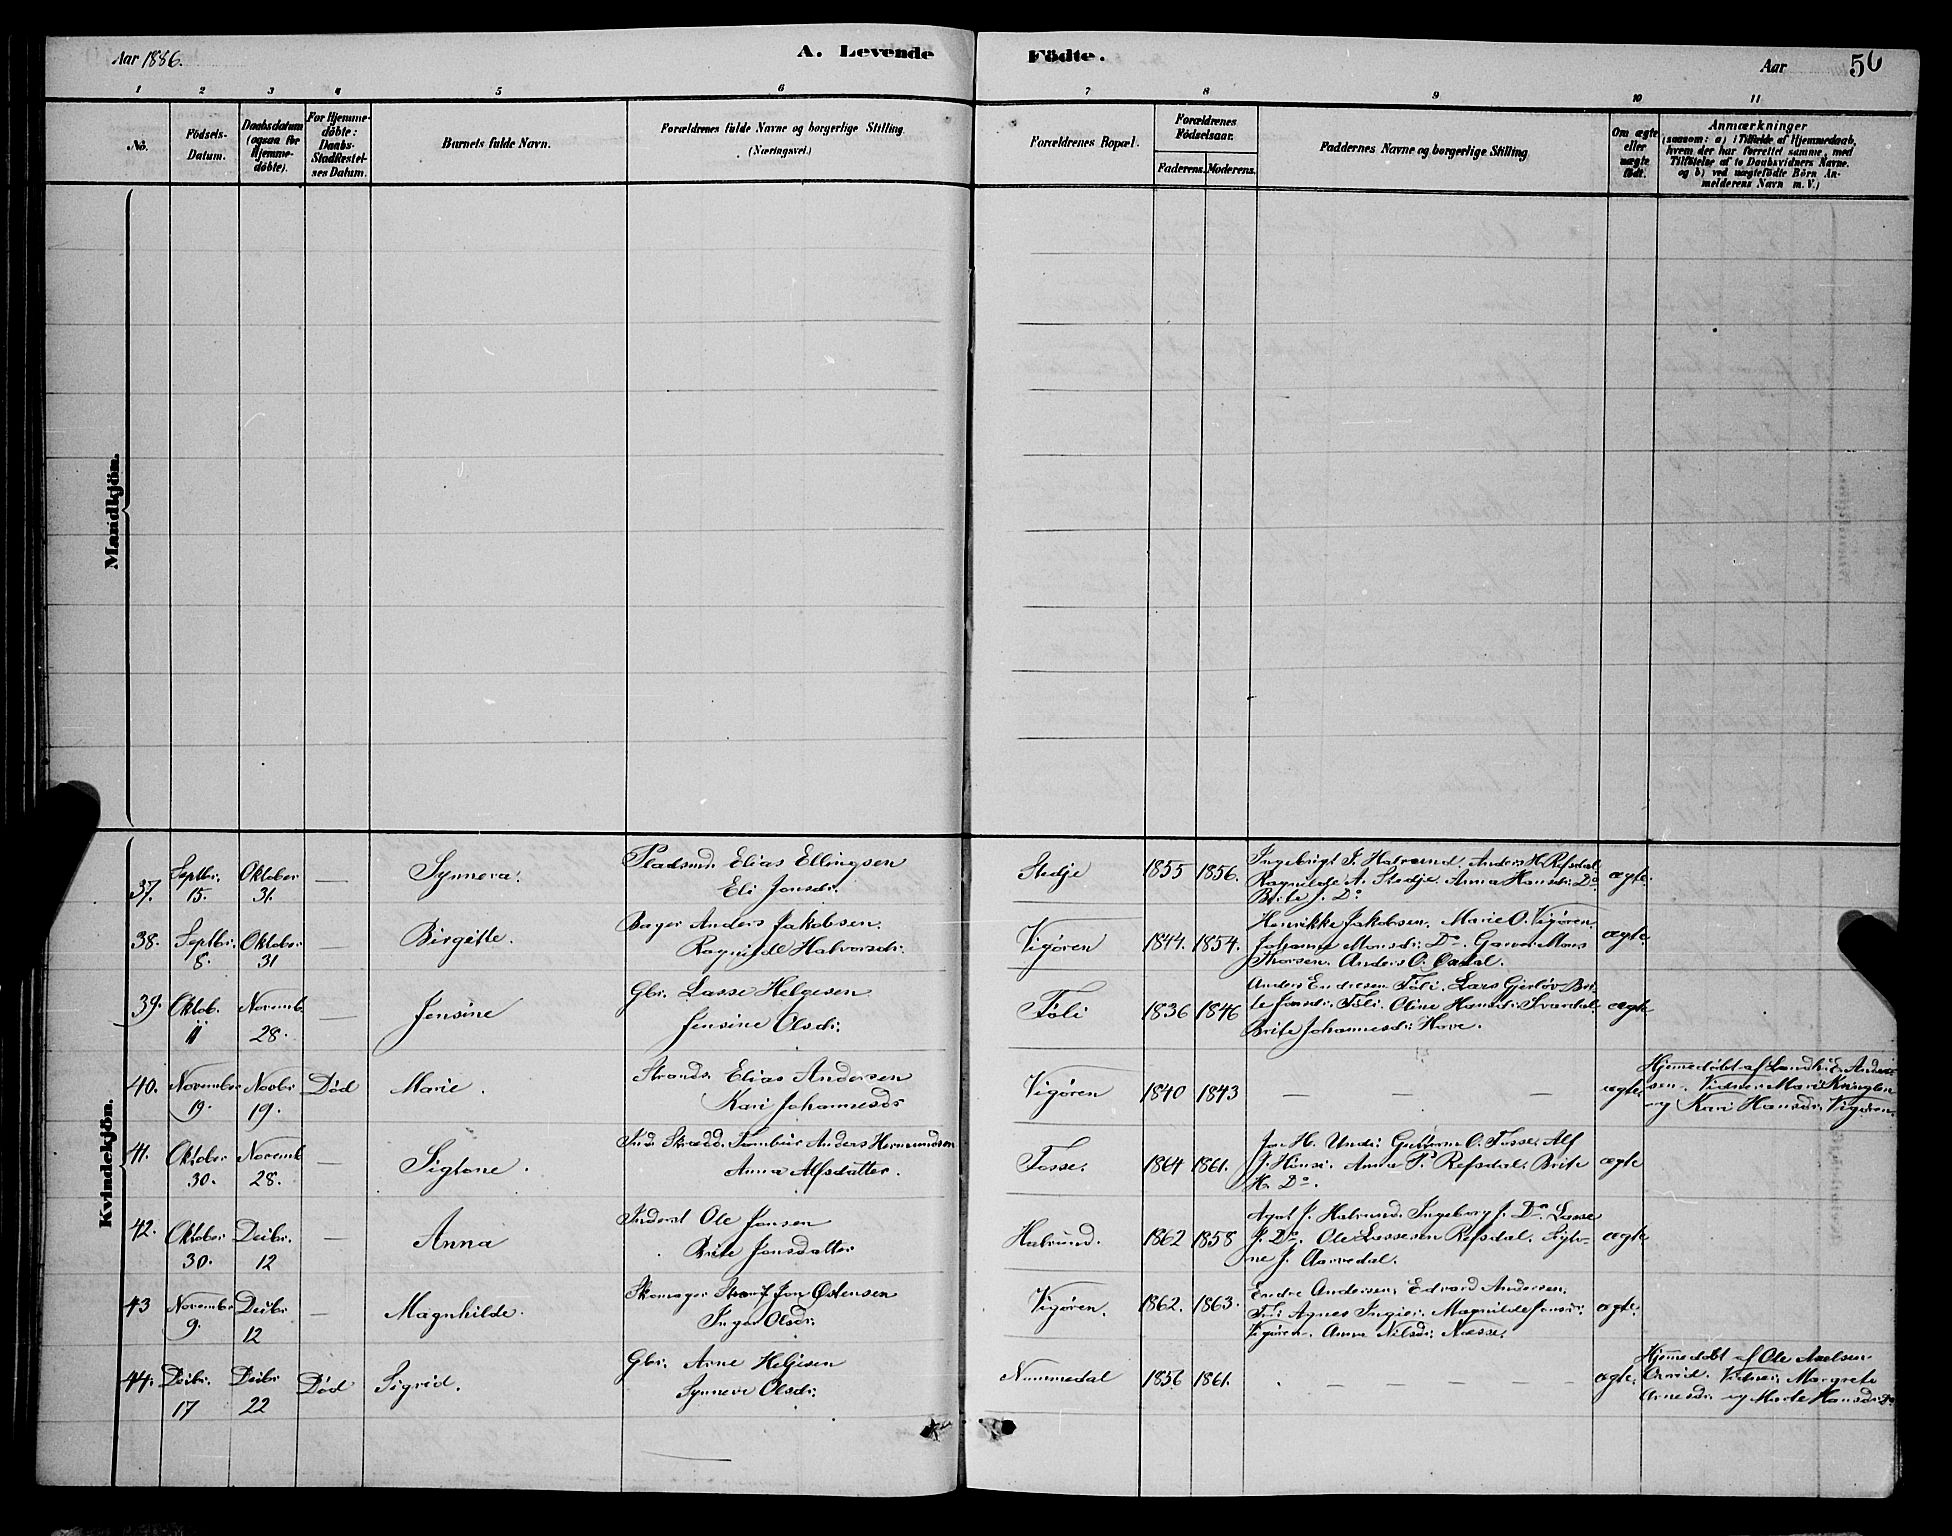 Aar 1886.
A. Levende
Födte.
Aar
56
1 2 3 4 5 6 7 8 9 10 11
No.
Födsels-
Datum.
Daabsdatum
(ogsaa for
Hjemme-
döbte).
For Hjemme-
döbte:
Daabs-
Stadfæstel-
ses Datum.
Barnets fulde Navn.
Forældrenes fulde Navne og borgerlige Stilling
(Næringsvei.)
Forældrenes Bopæl.
Forældrenes
Födselsaar.
Faderens. Moderens.
Faddernes Navne og borgerlige Stilling
Om ægte
eller
uægte
födt.
Anmærkninger
(saasom: a) i Tilfælde af Hjemmedaab,
hvem der har forrettet samme, med
Tilföielse af to Daabsvidners Navne.
og b) ved uægtefödte Börn An-
melderens Navn m. V.)
Mandkjön.
Kvindekjön.
37. Septbr. 15. Oktober 31. — Synneva.
Pladsmd. Elias Ellingsen
Eli Jonsdr.
Stedje 1855 1856.
Ingebrigt J. Halrund. Anders H. Refsdal
Ragnilde A. Stedje. Anna Hansdr. Do
Brite J. Do
ægte.
38. Septbr. 8. Oktober 31 — Birgitte.
Bager Anders Jakobsen.
Ragnilde Halvorsdr.
Vigören 1844. 1854.
Henrikke Jakobsen. Marie O. Vigören.
Johanne Monsdr. Do. Garver Mons
Thorsen. Anders O.
ægte.
39. Oktob. 11 Novemb. 28. — Jensine
Gbr. Lasse Helgesen
Jensine Olsdr.
Föli 1836 1846
Anders Endresen Föli. Lars Gjerlöv Bri-
te Jonsdr. Föli. Oline Hansdr. Svardal.
Brite Johannesdr. Hove.
ægte
40. November 19. Novbr. 19. Död Marie.
Strands. Elias Andersen
Kari Johannesdr
Vigören 1840 1843 — — —
ægte.
Hjemmedöbt af Landh. E. Ander-
sen. Vidner Mari Kringlen
og Kari Hansdr. Vigören.
41. Oktober 30. Novemb 28. — Sigtone.
Ind. Skrædd. Tambur Anders Hermundsen
Anna Alfsdatter.
Fosse. 1864 1861.
Jon H. Undi. Guttorm O. Fosse. Alf
J. Hönsi. Anna P. Refsdal. Brite
H. Do.
ægte
42. Oktober 30. Decbr. 12 — Anna
Inderst Ole Jonsen
Brite Jonsdatter
Halrund. 1862 1858
J. Halrund. Ingeborg J. Do. Lasse
J. Do. Ole Lassesen Refsdal.
ne J. Aarvedal.
ægte
43 November 9. Decbr 12 — Magnhilde.
Skomager Strands. Jon Östensen
Inga Olsdr.
Vigören. 1862. 1863.
Endre Andersen. Edvard Andersen.
Agnes Magnilde Jonsdr.
Vigören. Anna Nilsdr. Næsse.
ægte.
44. Decbr. 17 Decbr 22 Död Sigrid.
Gbr. Arne Helgesen
Synneve Olsdr.
Nummedal 1856 1861. — — — —
ægte.
Hjemmedöbt af Ole Axelsen
Vidner Margrete
Arnesdr. og Marte Hansdr. Do